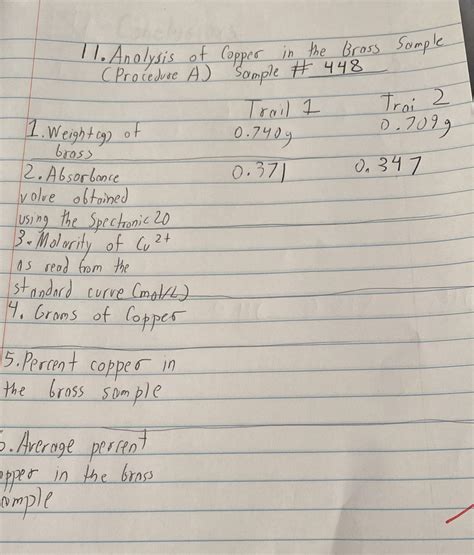 11. Analysis of Copper in the Brass Sample
(Procedure A) Sample # 448
Trail 1 Trai 2
1. Weight(g) of 0.740g 0.709g
brass
2. Absorbance 0.371 0.347
valve obtained
using the Spectronic 20
3. Molarity of Cu2+
as read from the
standard curve (mol/L)
4. Grams of Copper
5. Percent copper in
the brass sample
6. Average percent
opper in the brass
ample